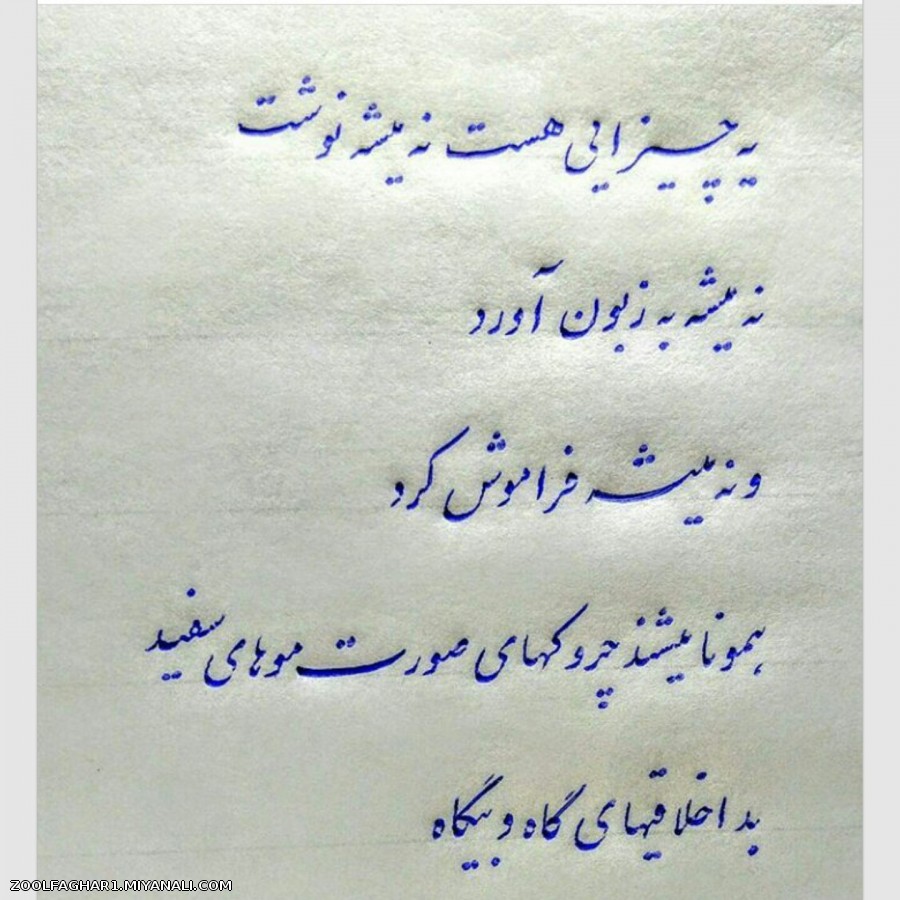 یه چیزایی هست نه میشه نوشت
نه میشه به زبون آورد
و نه میشه فراموش کرد
همونا میشند چروکهای صورت موهای سفید
بد اخلاقیهای گاه و بیگاه
ZOOLFAGHAR1.MIYANALI.COM